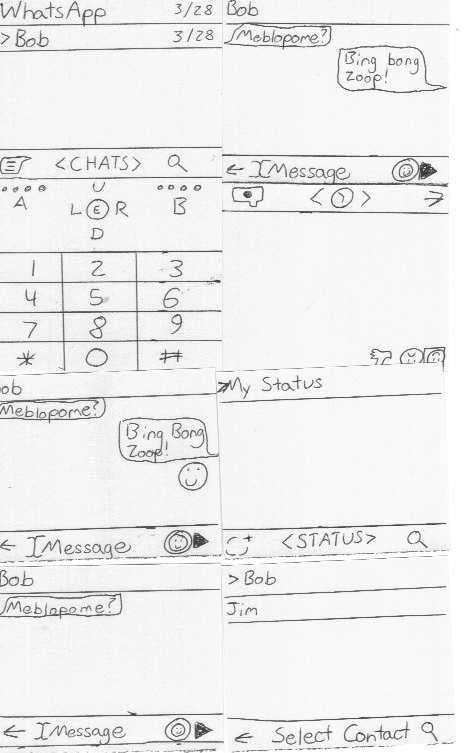 WhatsApp 3/28
>Bob 3/28
<CHATS>
A
U
L E R
D
B
1 2 3
4 5 6
7 8 9
* 0 #
Bob
Meblopome?
Bing bong
Zoop!
← IMessage
< Y > →
ob
Meblopome?
Bing Bong
Zoop!
← IMessage
>My Status
<STATUS>
Bob
Meblopome?
← IMessage
> Bob
Jim
← Select Contact